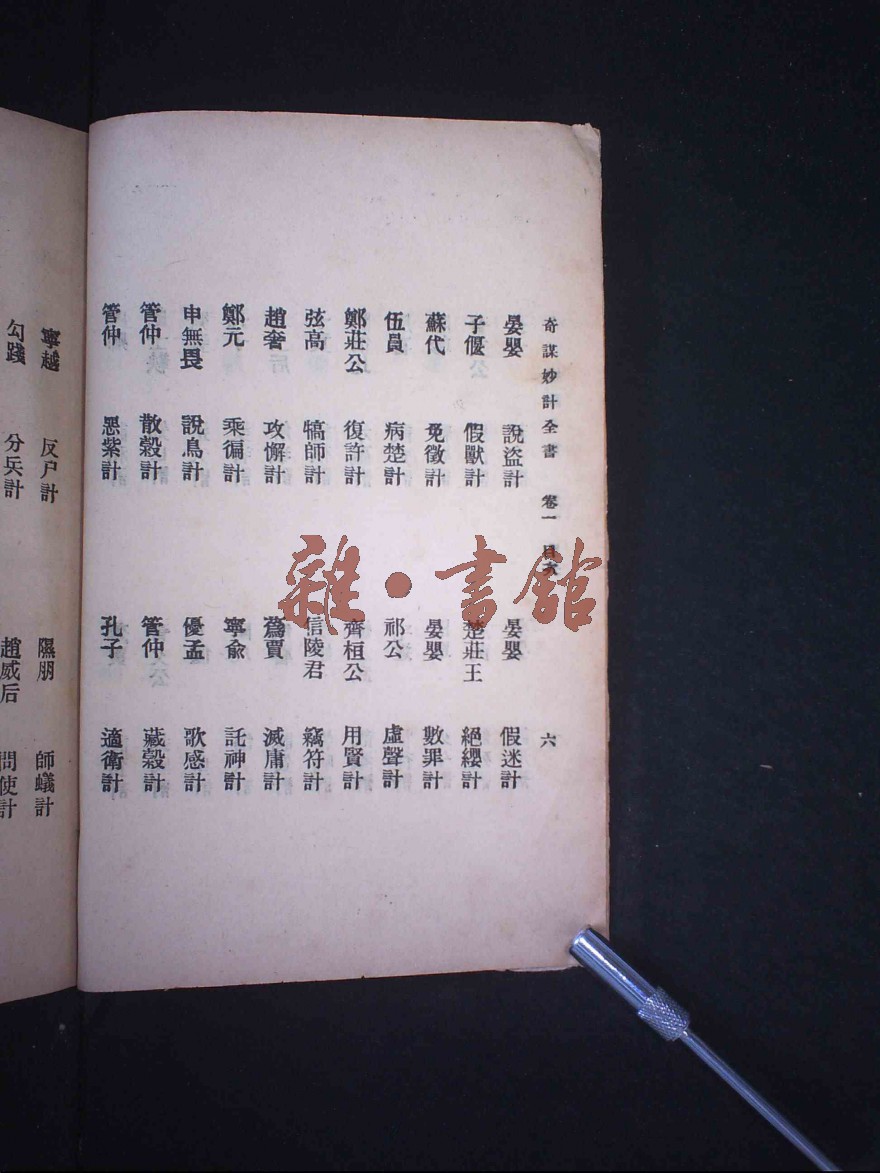 奇謀妙計全書 卷一 目次 六
晏嬰 說盜計 晏嬰 假迷計
子偃 假獸計 楚莊王 絕纓計
蘇代 免徵計 晏嬰 數罪計
伍員 病楚計 祁公 虛聲計
鄭莊公 復許計 齊桓公 用賢計
弦高 犒師計 信陵君 竊符計
趙奢 攻懈計 蔿賈 滅庸計
鄭元 乘徧計 寧俞 託神計
申無畏 說鳥計 優孟 歌感計
管仲 散穀計 管仲 藏穀計
管仲 惡紫計 孔子 適衛計
寧越 反尸計 隰朋 師蟻計
勾踐 分兵計 趙威后 問使計
雜·書館